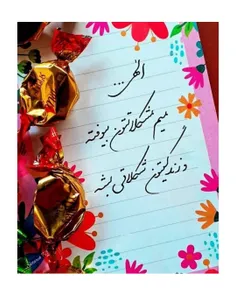 الهی...
میم مشکلاتتون بیوفته
و زندگیتون شکلاتی بشه